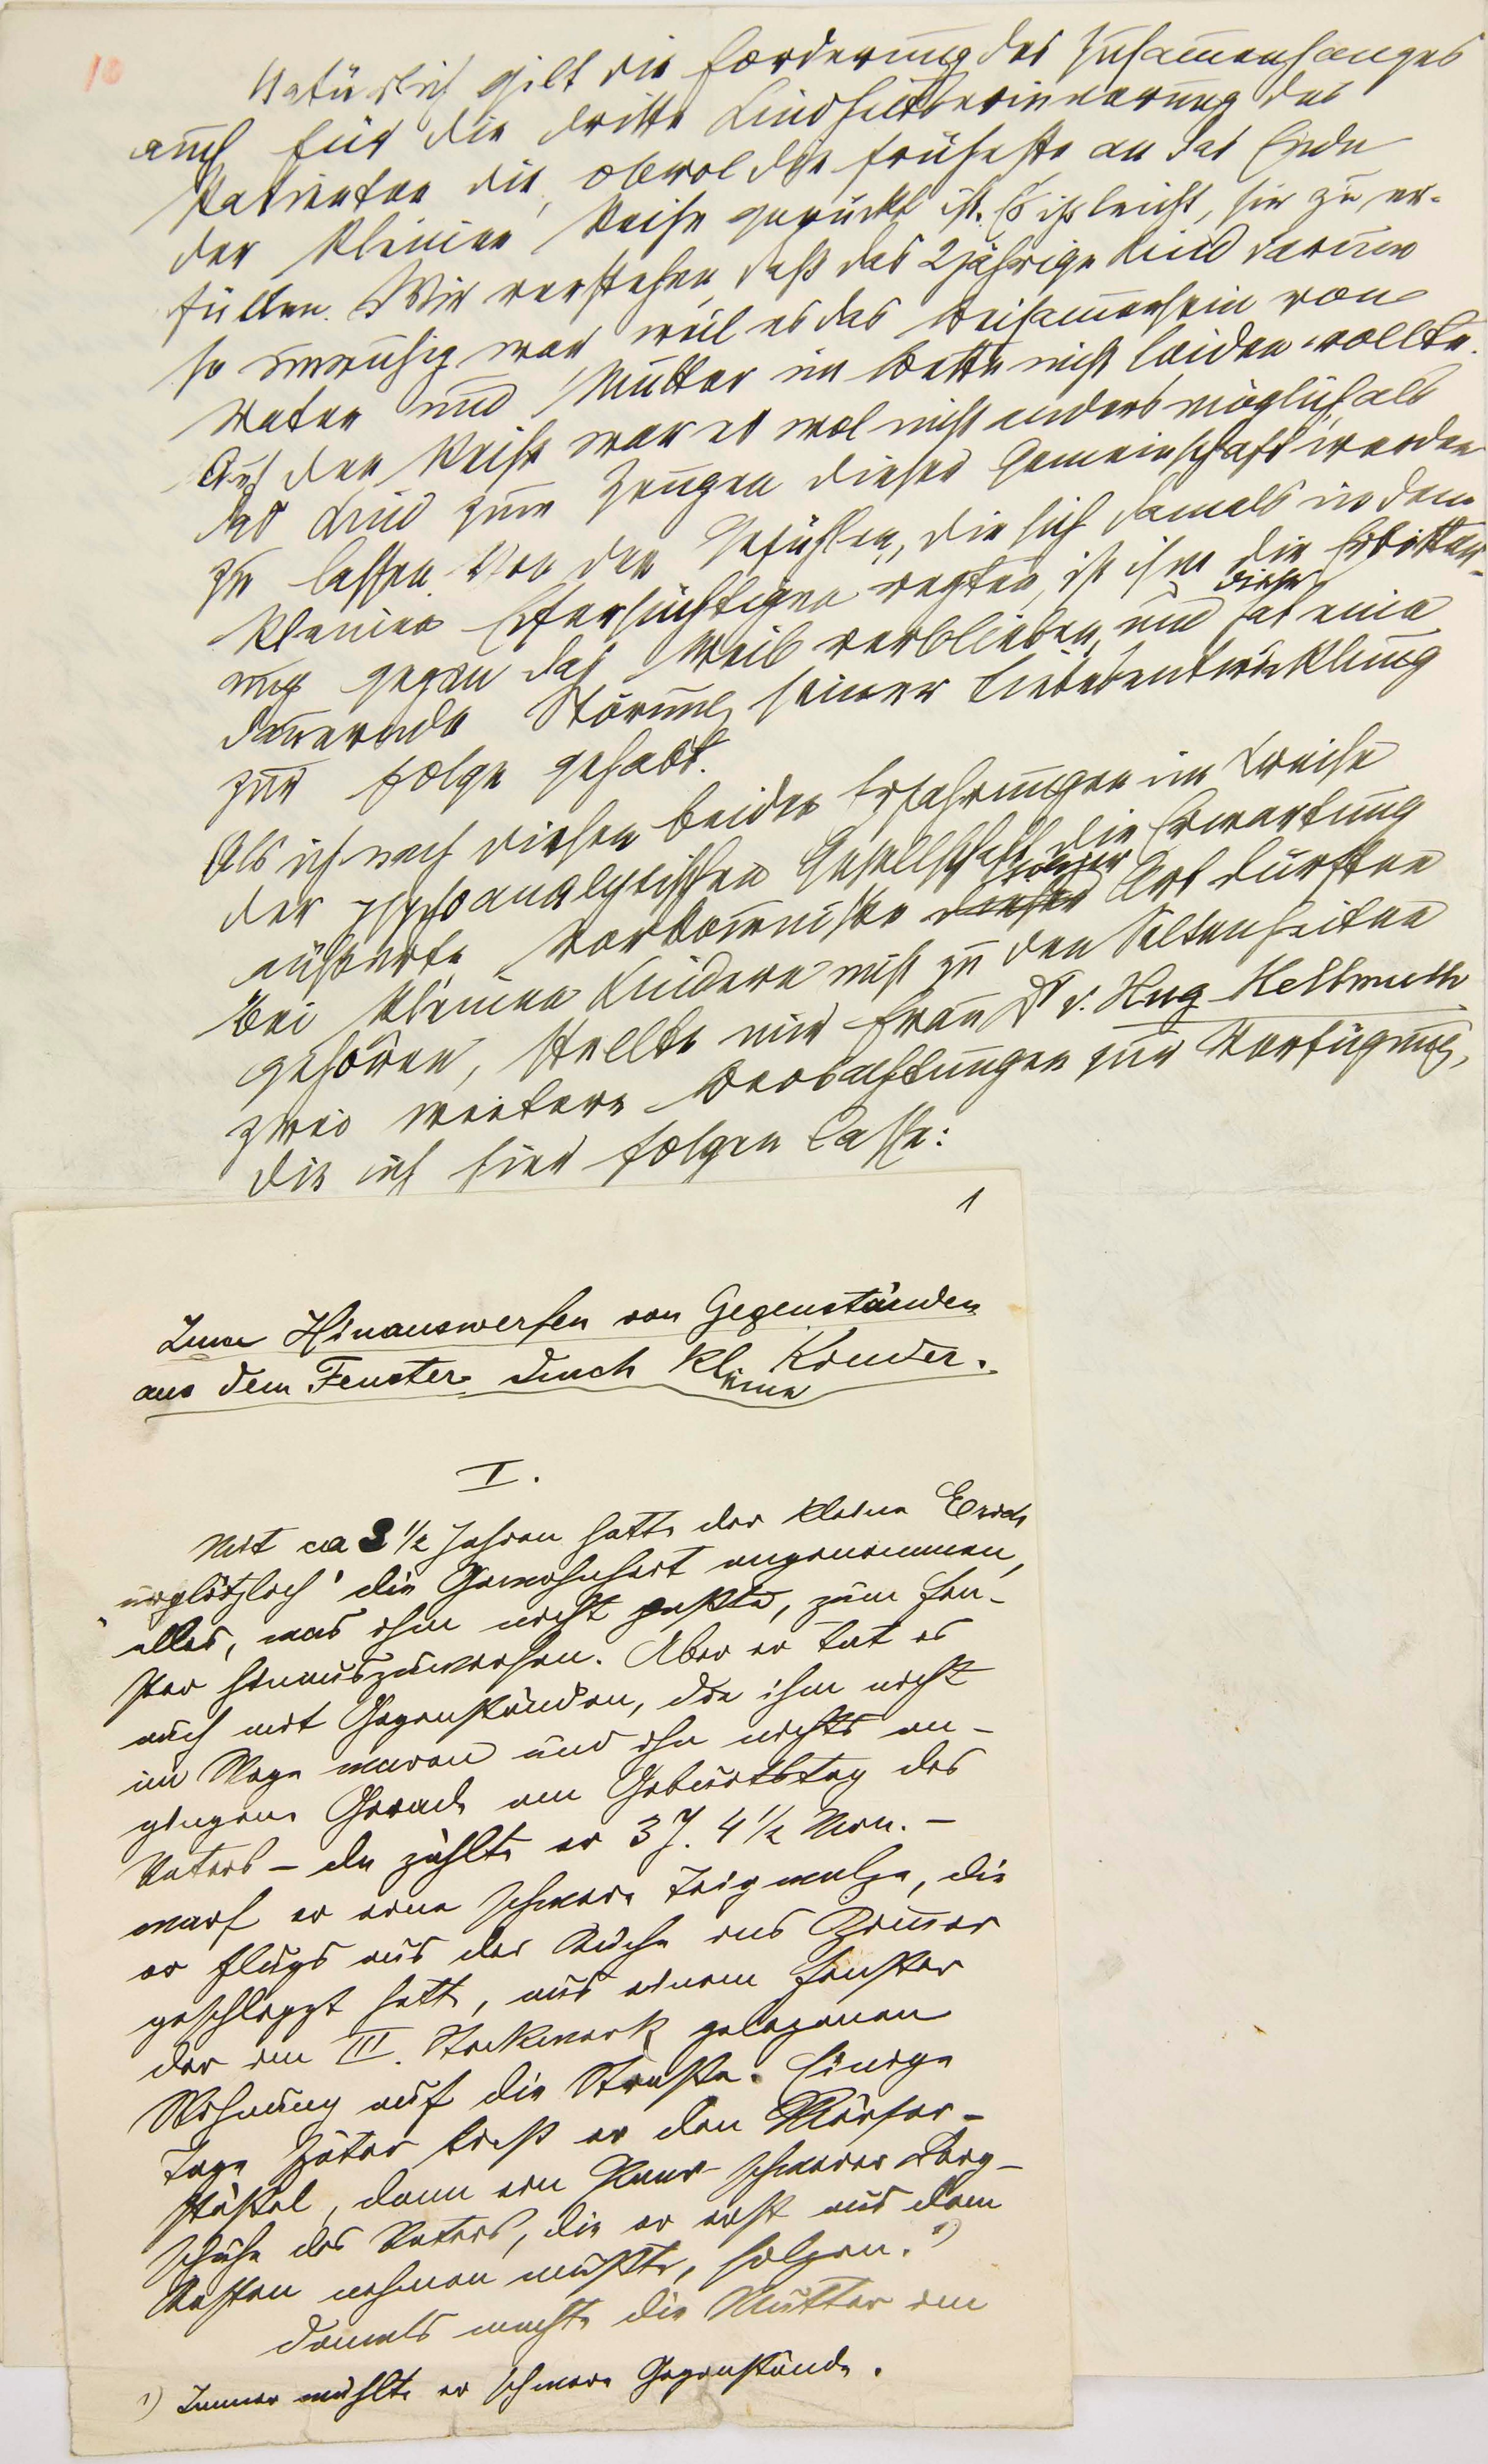 10
Natürlich gilt die Forderung des Zusam̄enhanges
auch für die dritte Kindheitserinnerung des
Patienten die, obwol die früheste an das Ende
der kleinen Reihe gerückt ist. Es ist leicht, sie zu er-
füllen. Wir verstehen, daß das 2jährige Kind darum
so unruhig war, weil es das Beisam̄ensein von
Vater und Mutter im Bette nicht leiden wollte.
Auf der Reise war es wol nicht anders möglich, als
das Kind zum Zeugen dieser Gemeinschaft werden
zu lassen. Von den Gefühlen, die sich damals in dem
kleinen Eifersüchtigen regten, ist ihm die Erbitter-
ung gegen das Weib verblieben, und diese hat eine
dauernde Störung seiner Liebesentwicklung
zur Folge gehabt.
Als ich nach diesen beiden Erfahrungen im Kreise
der psychoanalytischen Gesellschaft die Erwartung
äußerte, Vorkom̄nisse dieser solcher Art dürften
bei kleinen Kindern nicht zu den Seltenheiten
gehören, stellte mir Frau Dr v. Hug-Hellmuth
zwei weitere Beobachtungen zur Verfügung,
die ich hier folgen lasse:
1
Zum Hinauswerfen von Gegenständen
aus dem Fenster durch kleine Kinder.
I.
Mit ca 3 ½ Jahren hatte der kleine Erich
„urplötzlich" die Gewohnheit angenommen,
alles, was ihm nicht paßte, zum Fen-
ster hinauszuwerfen. Aber er tat es
auch mit Gegenständen, die ihm nicht
im Wege waren und ihn nichts an-
gingen. Gerade am Geburtstag des
Vaters – da zählte er 3 J. 4 ½ Mon. –
warf er eine schwere Teigwalze, die
er flugs aus der Küche ins Zimmer
geschleppt hatte, aus einem Fenster
der im III. Stockwerk gelegenen
Wohnung auf die Straße. Einige
Tage später ließ er den Mörser-
stößel, dann ein Paar schwerer Berg-
schuhe des Vaters, die er erst aus dem
Kasten nehmen mußte, folgen. 1)
Damals machte die Mutter im
1) Immer wählte er schwere Gegenstände.